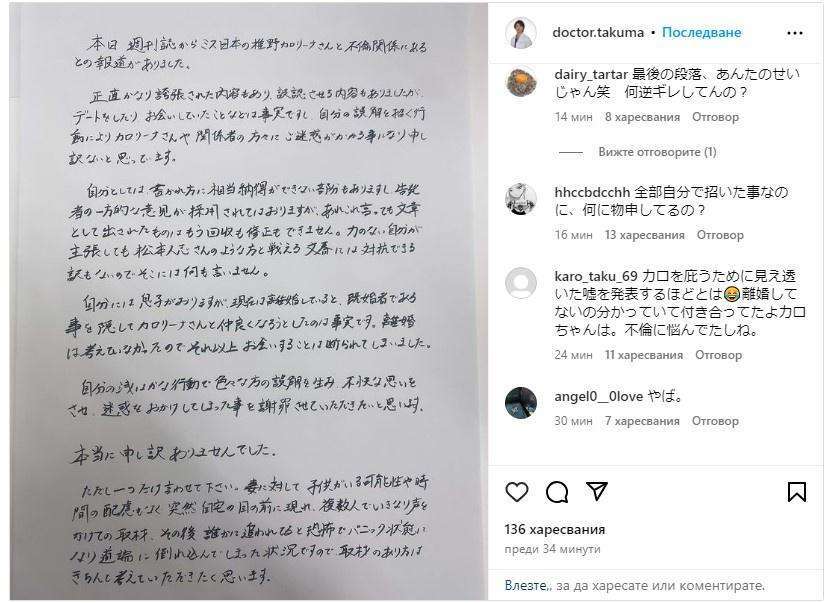 本日 週刊誌からミス日本の椎野カロリーナさんと不倫関係にある
との報道がありました。
正直かなり誇張された内容もあり、誤認させる内容もありましたが、
デートをしたり お会いしていたことなどは事実ですし、自分の誤解を招く行
動によりカロリーナさんや関係者の方々にご迷惑がかかる事になり申し
訳ないと思っています。
自分としては 書かれ方に相当納得ができない部分もありますし 告発
者の一方的な意見が採用されてはおりますが、あれこれ言っても文章
として出されたものはもう回収も修正もできません。力のない自分が
主張しても松本人志さんのような方と戦える文春には対抗できる
訳もないのでそこには何も言いません。
自分には息子がおりますが、現在は離婚していると、既婚者である
事を隠してカロリーナさんと仲良くなろうとしたのは事実です。離婚
は考えていなかったので それ以上お会いすることは断られてしまいました。
自分の浅はかな行動で色々な方の誤解を生み、不快な思いを
させ、迷惑をおかけしてしまった事を謝罪させていただきたいと思います。
本当に申し訳ありませんでした。
ただし一つだけ言わせて下さい。妻に対して 子供がいる可能性や時
間の配慮もなく 突然 自宅の目の前に現れ、複数人でいきなり声を
かけての取材、その後 誰かに追われてると恐怖でパニック状態に
なり道端に倒れ込んでしまった状況ですので 取材のあり方は
きちんと考えていただきたく思います。
doctor.takuma • Последване
dairy_tartar 最後の段落、あんたのせい
じゃん笑　何逆ギレしてんの？
14 мин 8 харесвания Отговор
Вижте отговорите (1)
hhccbdcchh 全部自分で招いた事なの
に、何に物申してるの？
16 мин 13 харесвания Отговор
karo_taku_69 カロを庇うために見え透
いた嘘を発表するほどとは😂離婚して
ないの分かっていて付き合ってたよカロ
ちゃんは。不倫に悩んでたしね。
24 мин 11 харесвания Отговор
angel0__0love やば。
30 мин 7 харесвания Отговор
136 харесвания
преди 34 минути
Влезте,, за да харесате или коментирате.